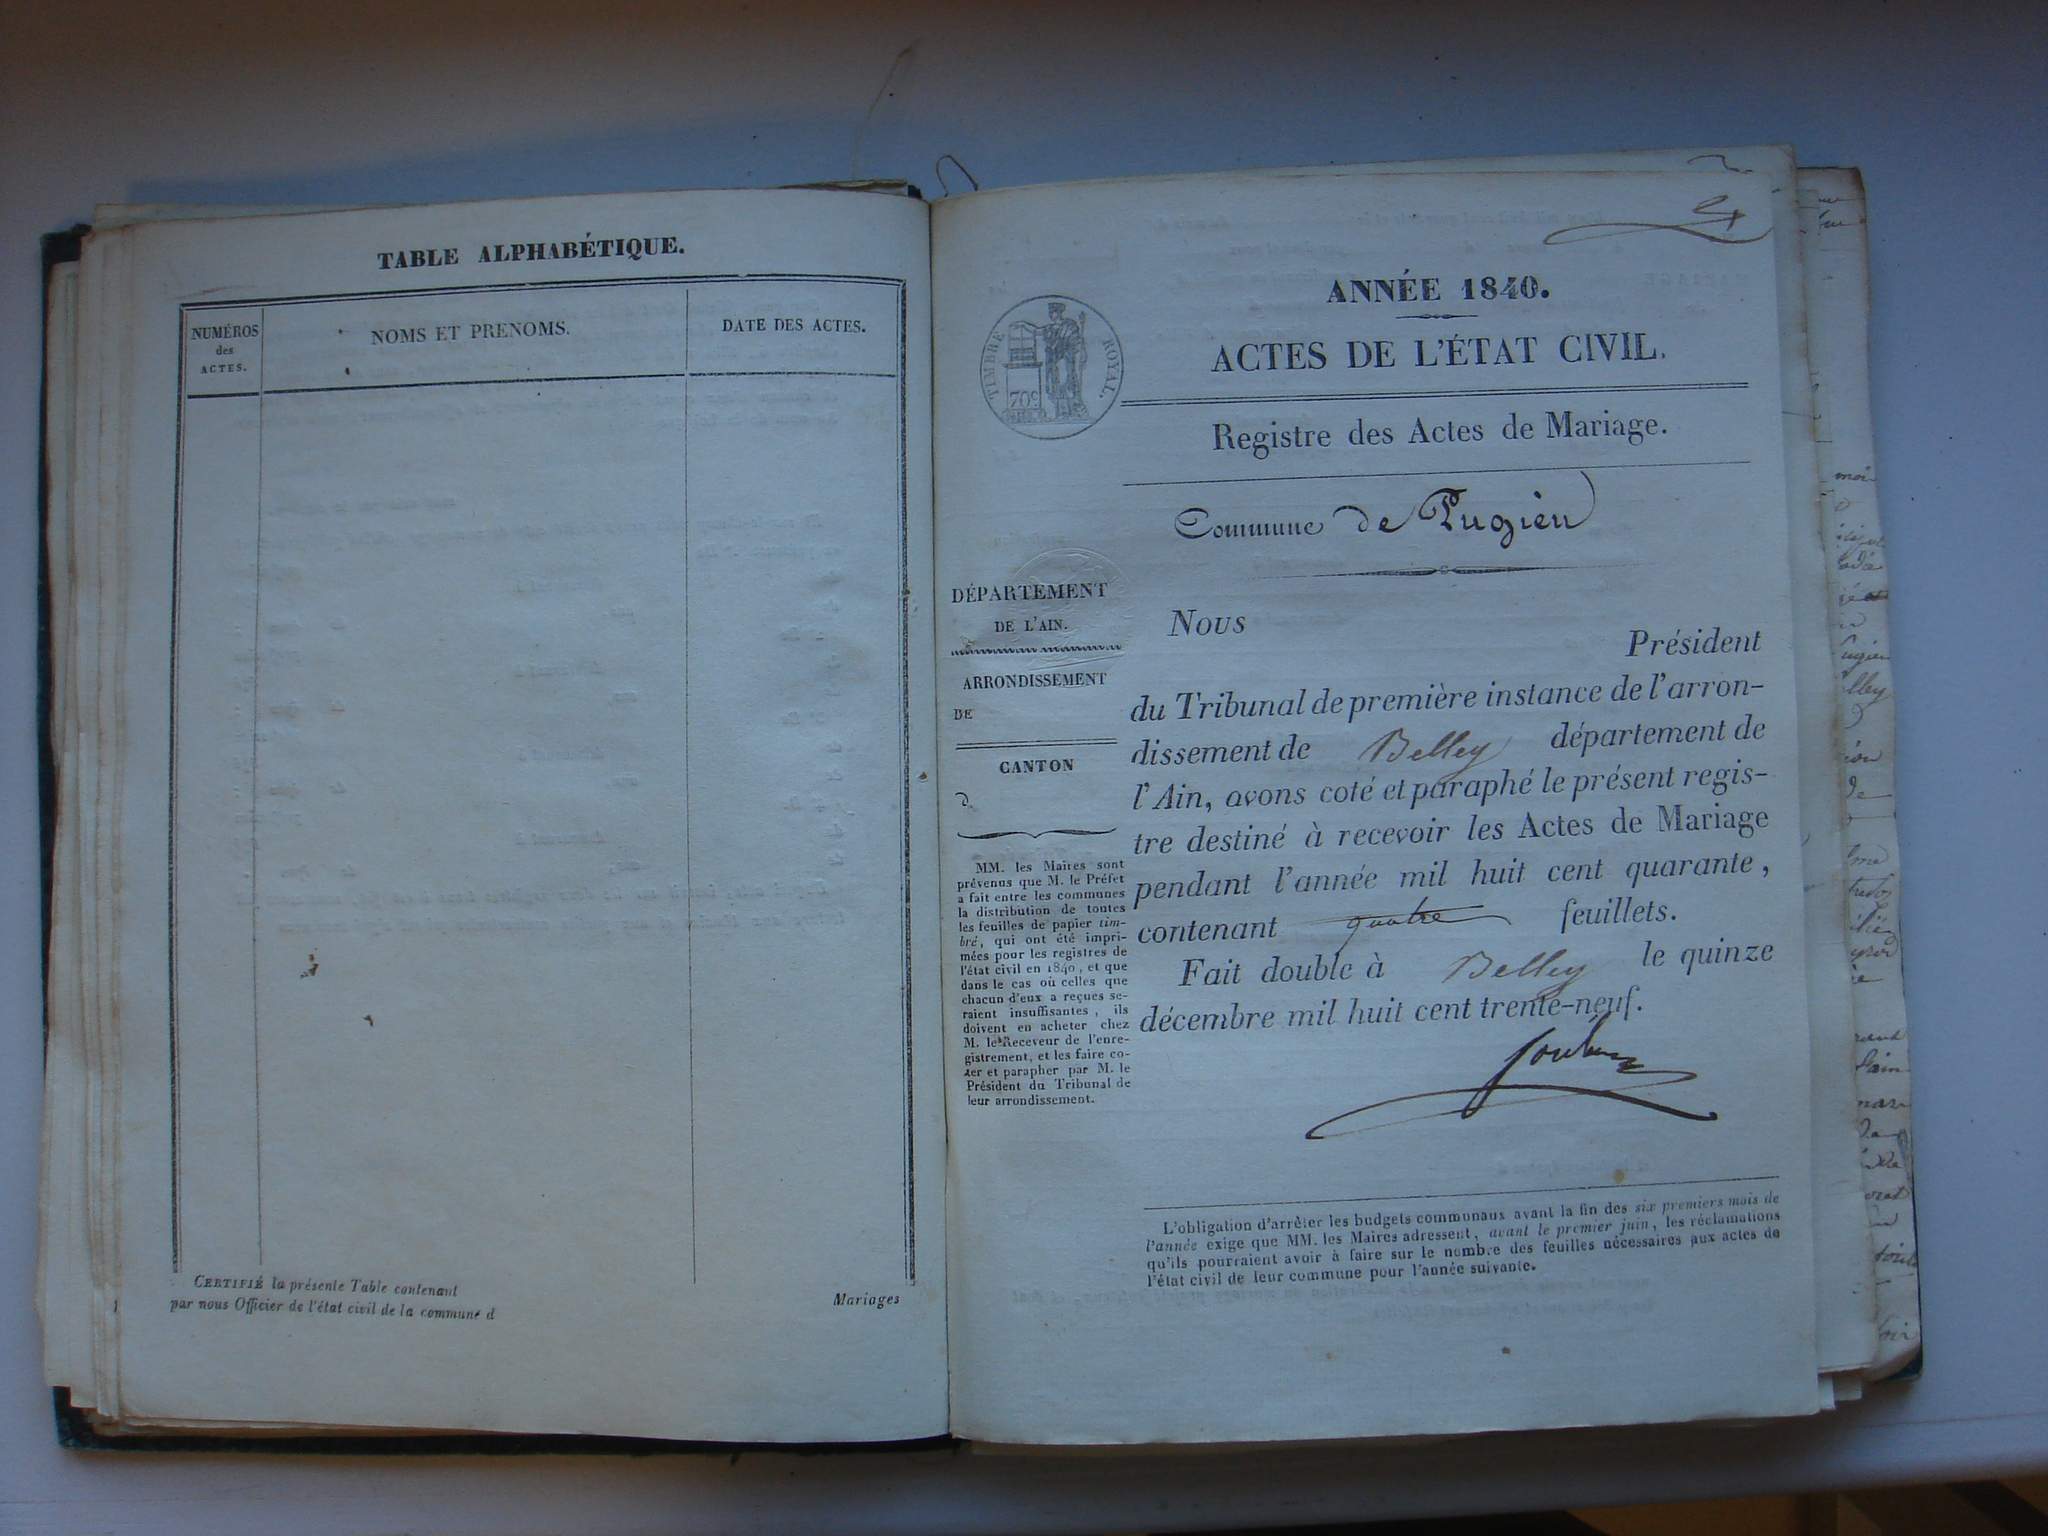 TABLE ALPHABÉTIQUE.
NUMÉROS
des
ACTES.
NOMS ET PRENOMS.
DATE DES ACTES.
CERTIFIÉ la présente Table contenant
Mariages
par nous Officier de l'état civil de la commune d
ANNÉE 1840.
ACTES DE L'ÉTAT CIVIL.
TIMBRE ROYAL.
70c
Registre des Actes de Mariage.
Commune de Pugieu
DÉPARTEMENT
DE L'AIN.
ARRONDISSEMENT
DE
CANTON
d
MM. les Maires sont
prévenus que M. le Préfet
a fait entre les communes
la distribution de toutes
les feuilles de papier tim-
bré, qui ont été impri-
mées pour les registres de
l'état civil en 1840, et que
dans le cas où celles que
chacun d'eux a reçues se-
raient insuffisantes, ils
doivent en acheter chez
M. le Receveur de l'enre-
gistrement, et les faire co-
ter et parapher par M. le
Président du Tribunal de
leur arrondissement.
Nous
Président
du Tribunal de première instance de l'arron-
dissement de Belley département de
l'Ain, avons coté et paraphé le présent regis-
tre destiné à recevoir les Actes de Mariage
pendant l'année mil huit cent quarante,
contenant quatre feuillets.
Fait double à Belley le quinze
décembre mil huit cent trente-neuf.
L'obligation d'arrêter les budgets communaux avant la fin des six premiers mois de
l'année exige que MM. les Maires adressent, avant le premier juin, les réclamations
qu'ils pourraient avoir à faire sur le nombre des feuilles nécessaires aux actes de
l'état civil de leur commune pour l'année suivante.